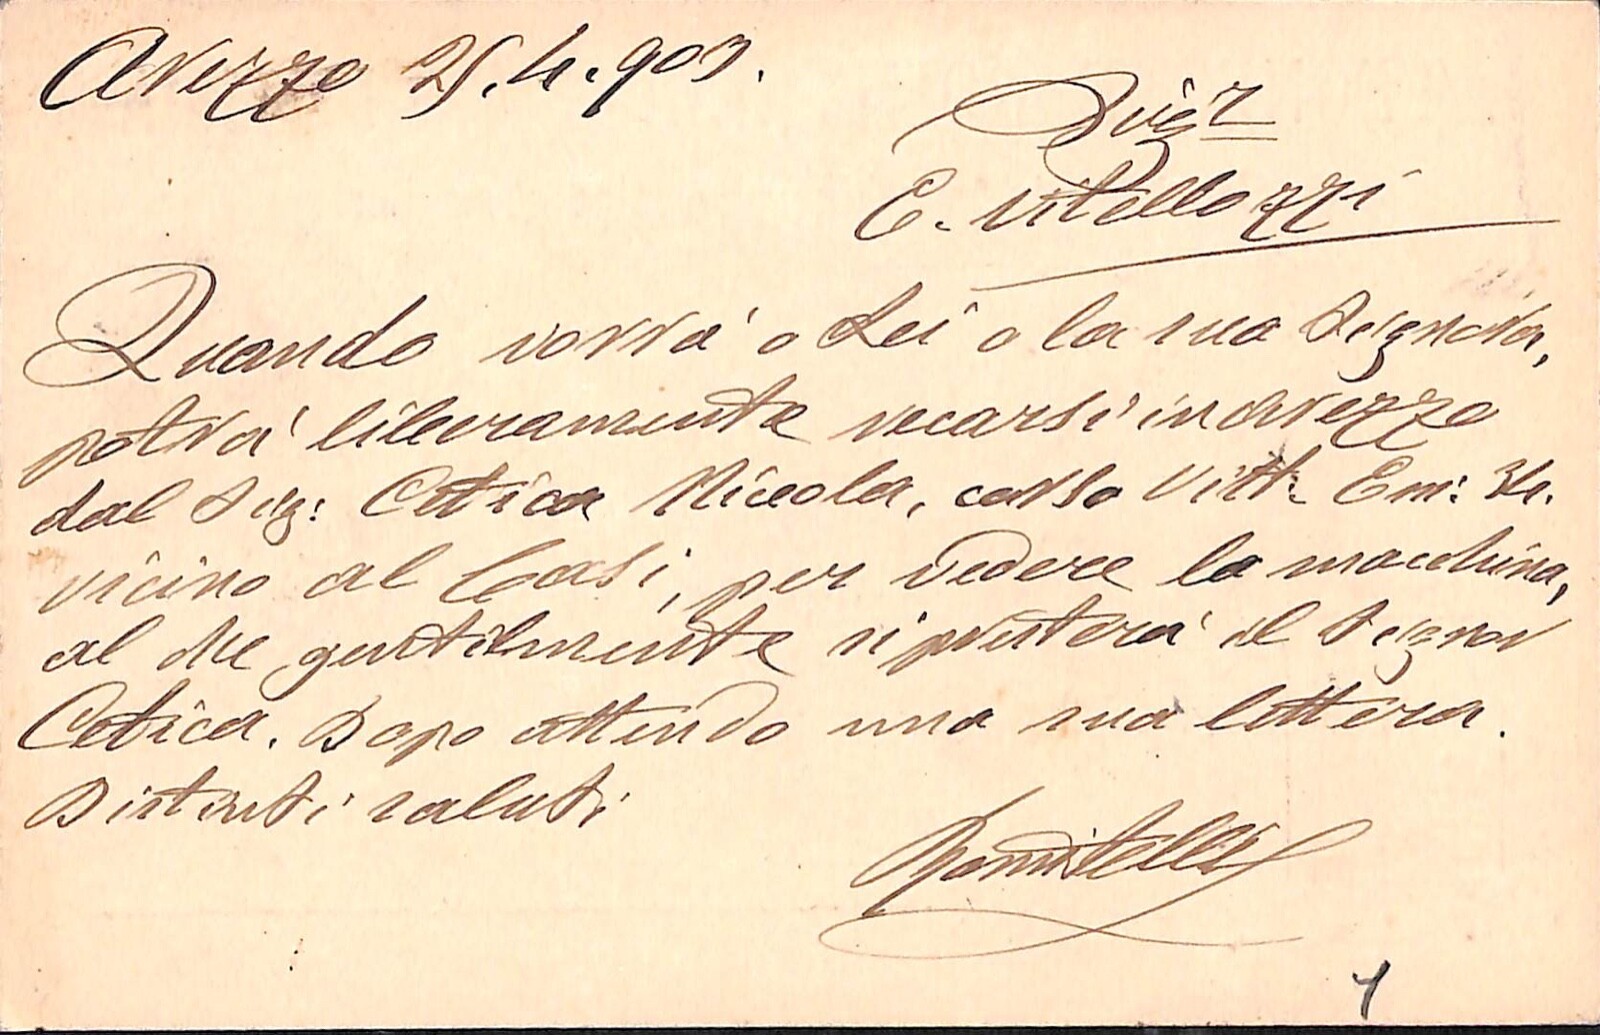 Arezzo 25.4.903.
Sig.r
E. Vitellozzi
Quando vorrà o Lei o la sua Signora,
potrà liberamente recarsi in Arezzo
dal Sig: Cetica Niccola, corso Vitt: Em:
vicino al Casi, per vedere la macchina,
al che gentilmente si presterà il Signor
Cetica. Dopo attendo una sua lettera.
Distinti saluti